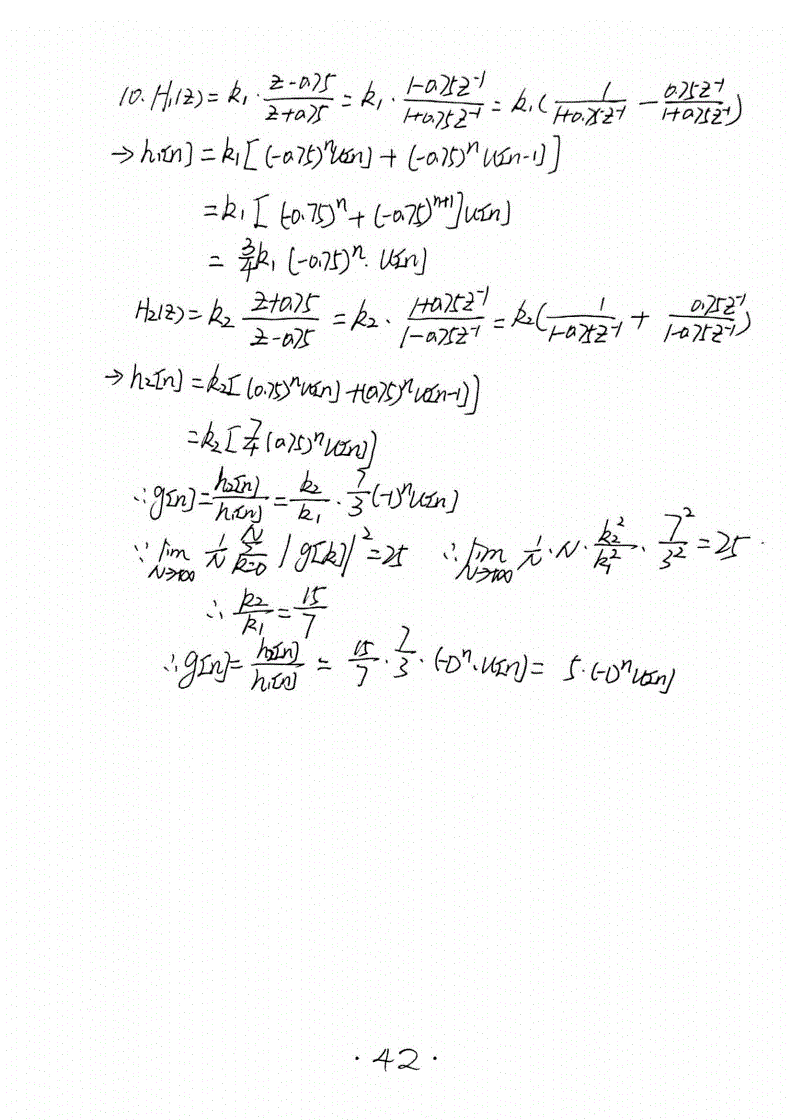 10. H₁(z) = k₁ · (z-0.75)/(z+0.75) = k₁ · (1-0.75z⁻¹)/(1+0.75z⁻¹) = k₁(1/(1+0.75z⁻¹) - 0.75z⁻¹/(1+0.75z⁻¹))
→ h₁[n] = k₁[(-0.75)ⁿu[n] + (-0.75)ⁿu[n-1]]
= k₁[(-0.75)ⁿ + (-0.75)ⁿ⁺¹]u[n]
= 3/4 k₁ (-0.75)ⁿ · u[n]
H₂(z) = k₂ (z+0.75)/(z-0.75) = k₂ · (1+0.75z⁻¹)/(1-0.75z⁻¹) = k₂(1/(1-0.75z⁻¹) + 0.75z⁻¹/(1-0.75z⁻¹))
→ h₂[n] = k₂[(0.75)ⁿu[n] + (0.75)ⁿu[n-1]]
= k₂[7/4 (0.75)ⁿu[n]]
∴ g[n] = h₂[n]/h₁[n] = k₂/k₁ · 7/3 (-1)ⁿu[n]
∵ lim N→∞ 1/N Σ k=0 N |g[k]|² = 25 ∴ lim N→∞ 1/N · N · k₂²/k₁² · 7²/3² = 25 .
∴ k₂/k₁ = 15/7
∴ g[n] = h₂[n]/h₁[n] = 15/7 · 7/3 · (-1)ⁿ · u[n] = 5 · (-1)ⁿu[n]
· 42 ·